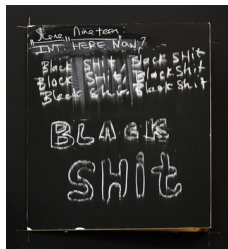 „Scene„ Nineteen:
INT. HERE NOW?
Black SHit Black SHit
Black SHit / Black SHit
Black SHit Black SHit
BLACK
SHit